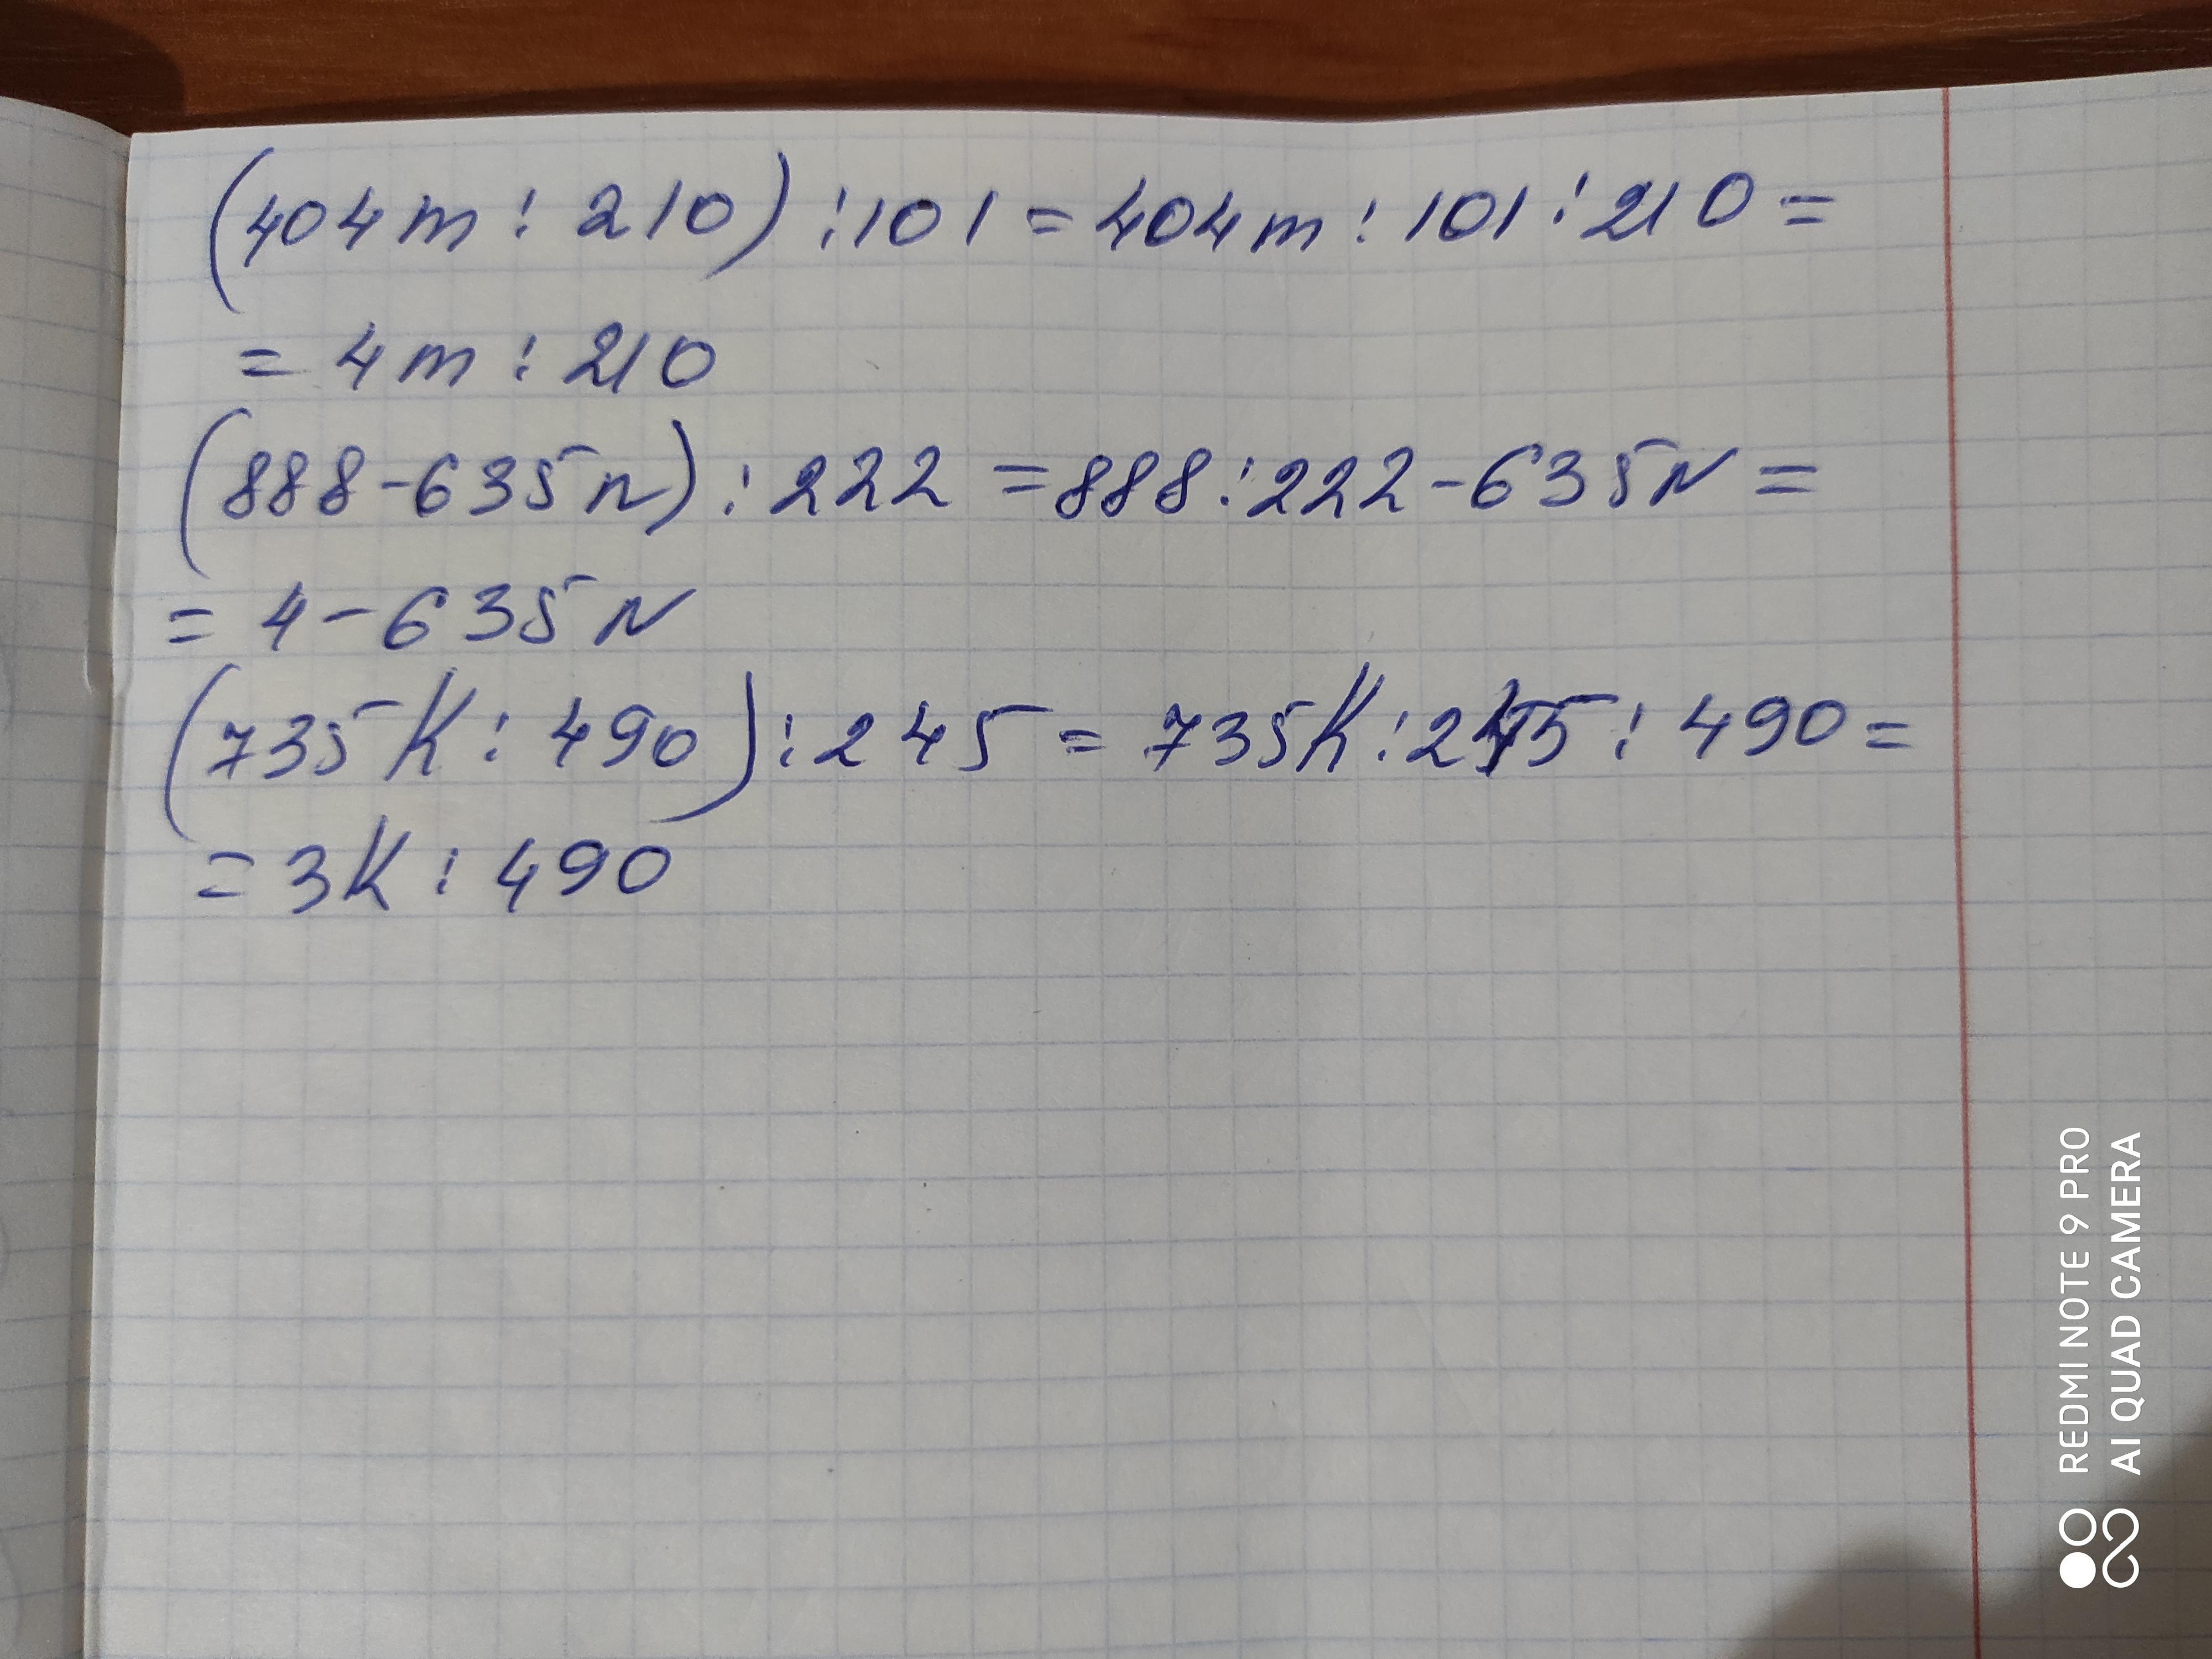 (404m : 210) : 101 = 404m : 101 : 210 =
= 4m : 210
(888-635n) : 222 = 888 : 222 - 635N =
= 4 - 635N
(735K : 490) : 245 = 735K : 245 : 490 =
= 3K : 490
REDMI NOTE 9 PRO
AI QUAD CAMERA